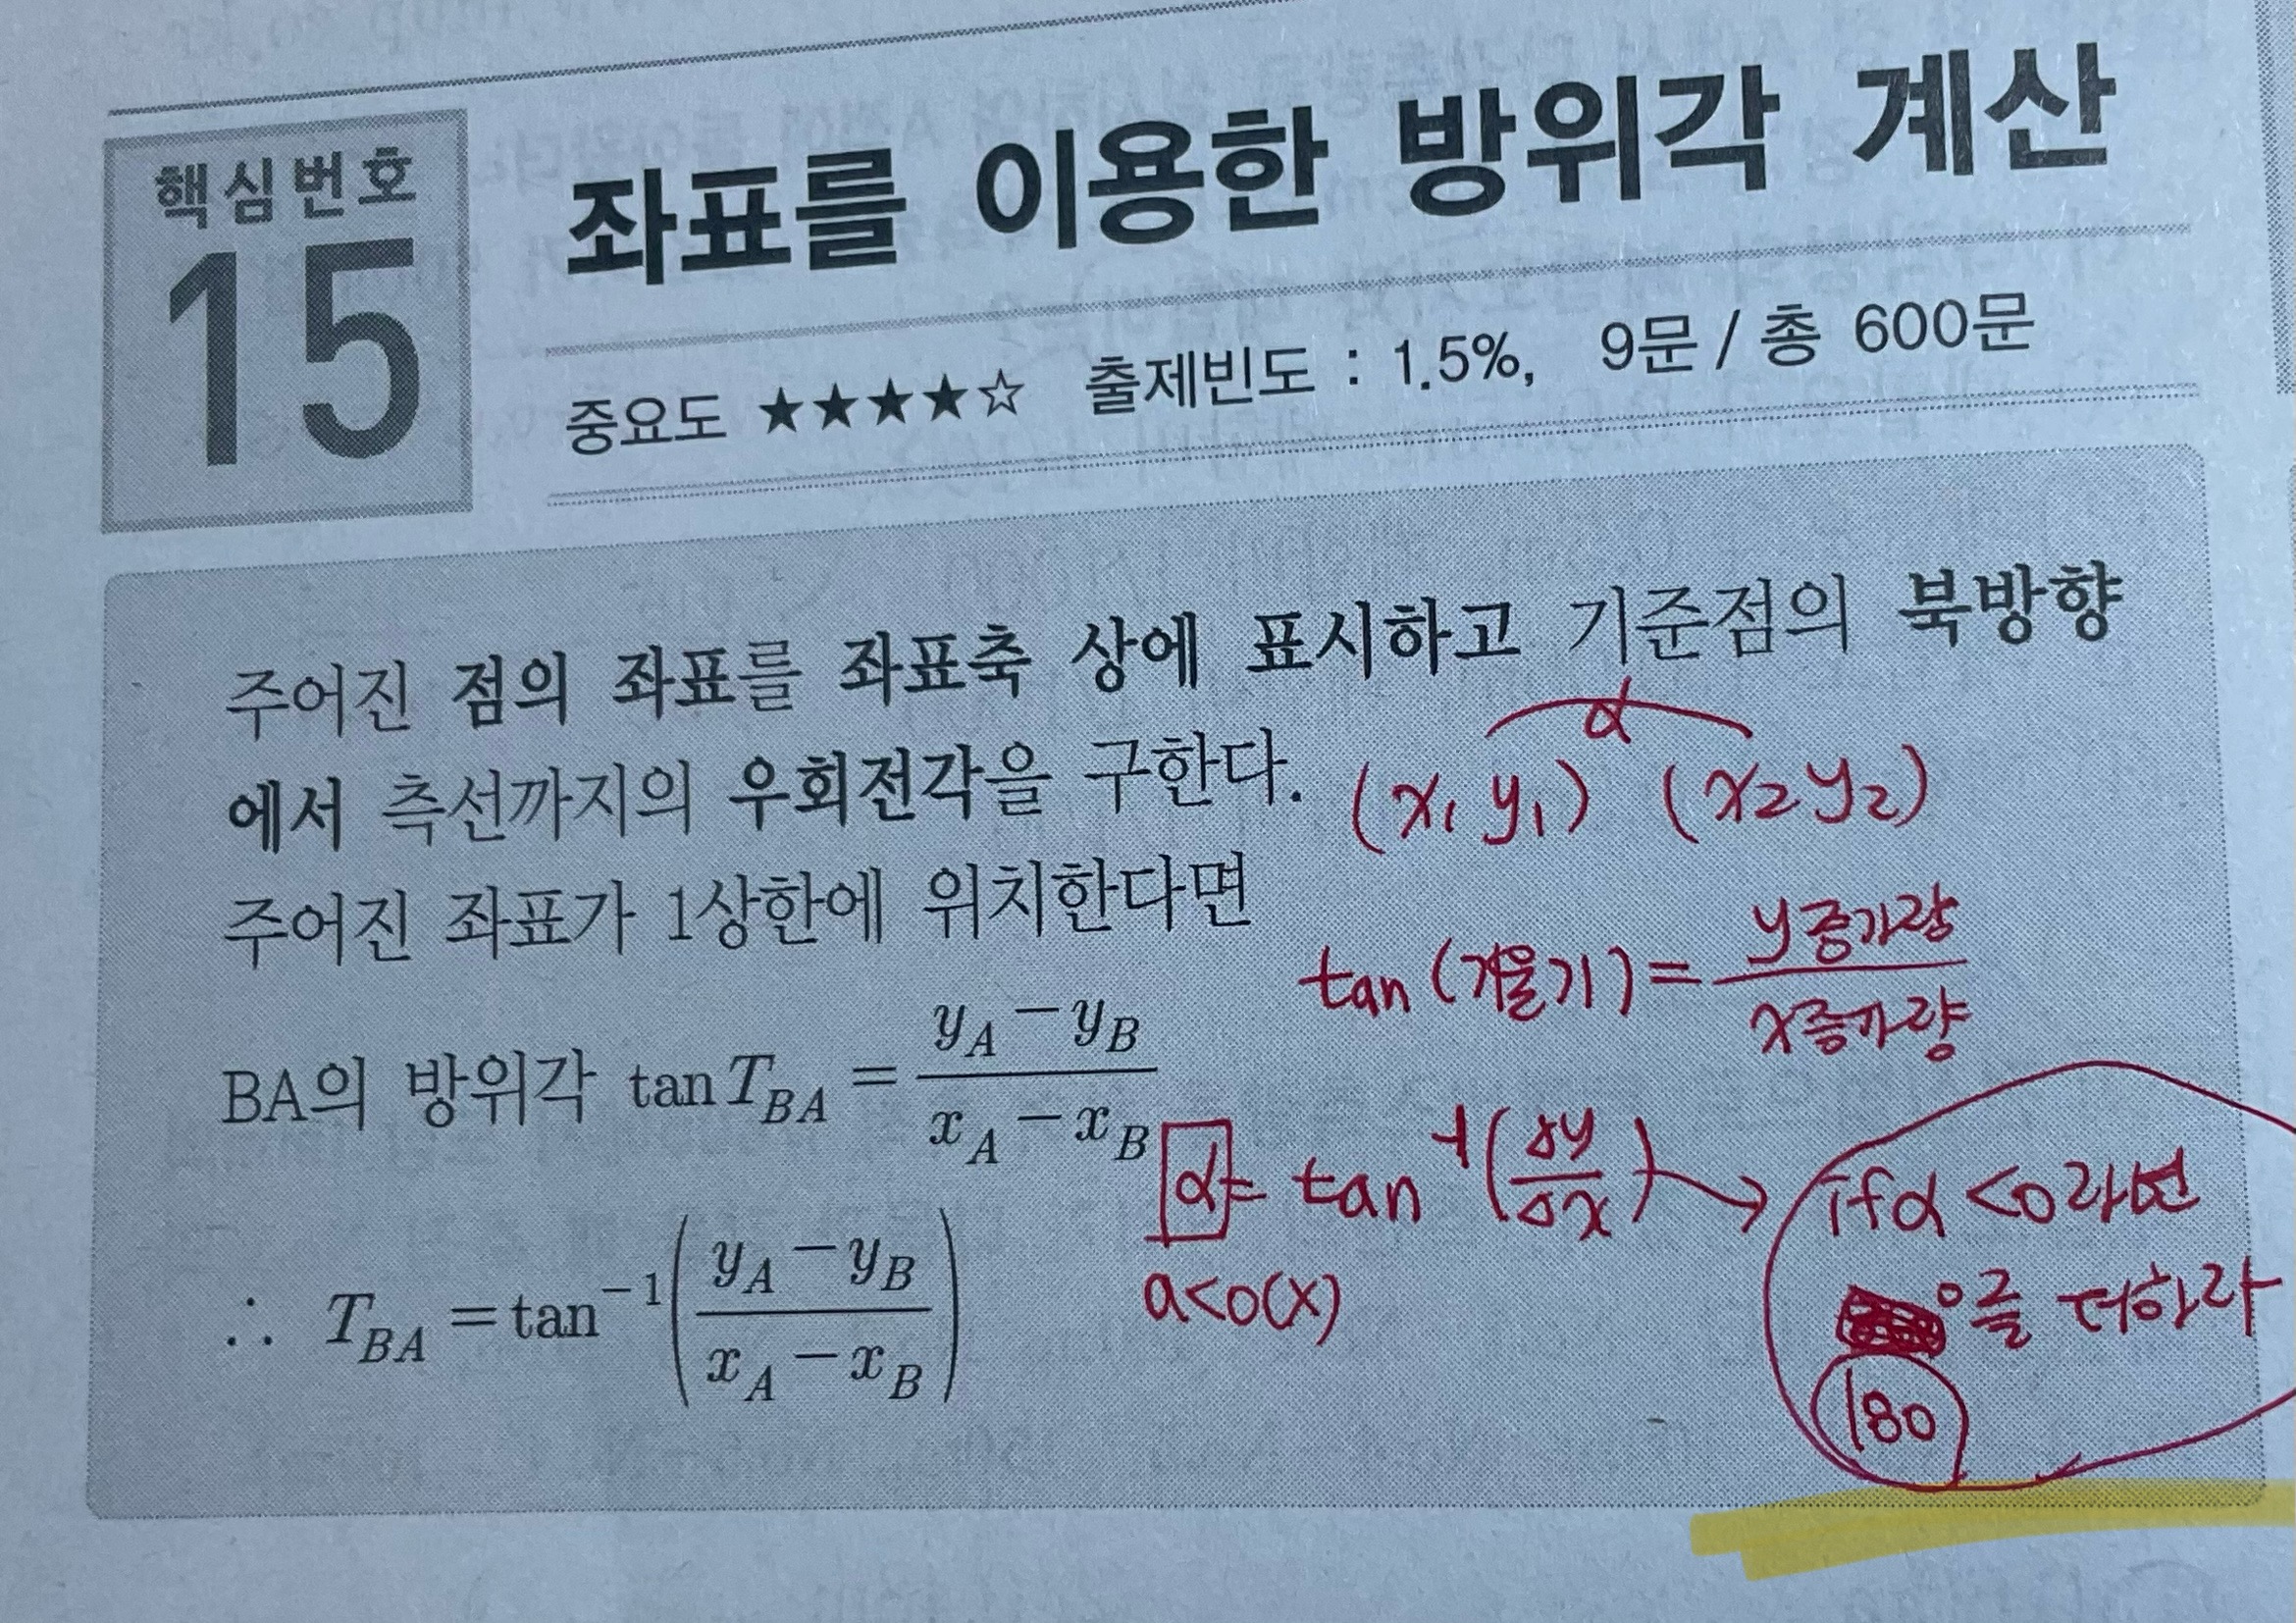 핵심번호
15
좌표를 이용한 방위각 계산
중요도 ★★★★☆ 출제빈도 : 1.5%, 9문 / 총 600문
주어진 점의 좌표를 좌표축 상에 표시하고 기준점의 북방향
에서 측선까지의 우회전각을 구한다.
α
(x₁ y₁) (x₂ y₂)
주어진 좌표가 1상한에 위치한다면
tan (기울기) = y증가량 / x증가량
BA의 방위각 tan T_BA = (y_A − y_B) / (x_A − x_B)
α = tan⁻¹(Δy/Δx) → if α < 0 라면
°를 더하라
180
a<0(x)
∴ T_BA = tan⁻¹((y_A − y_B) / (x_A − x_B))